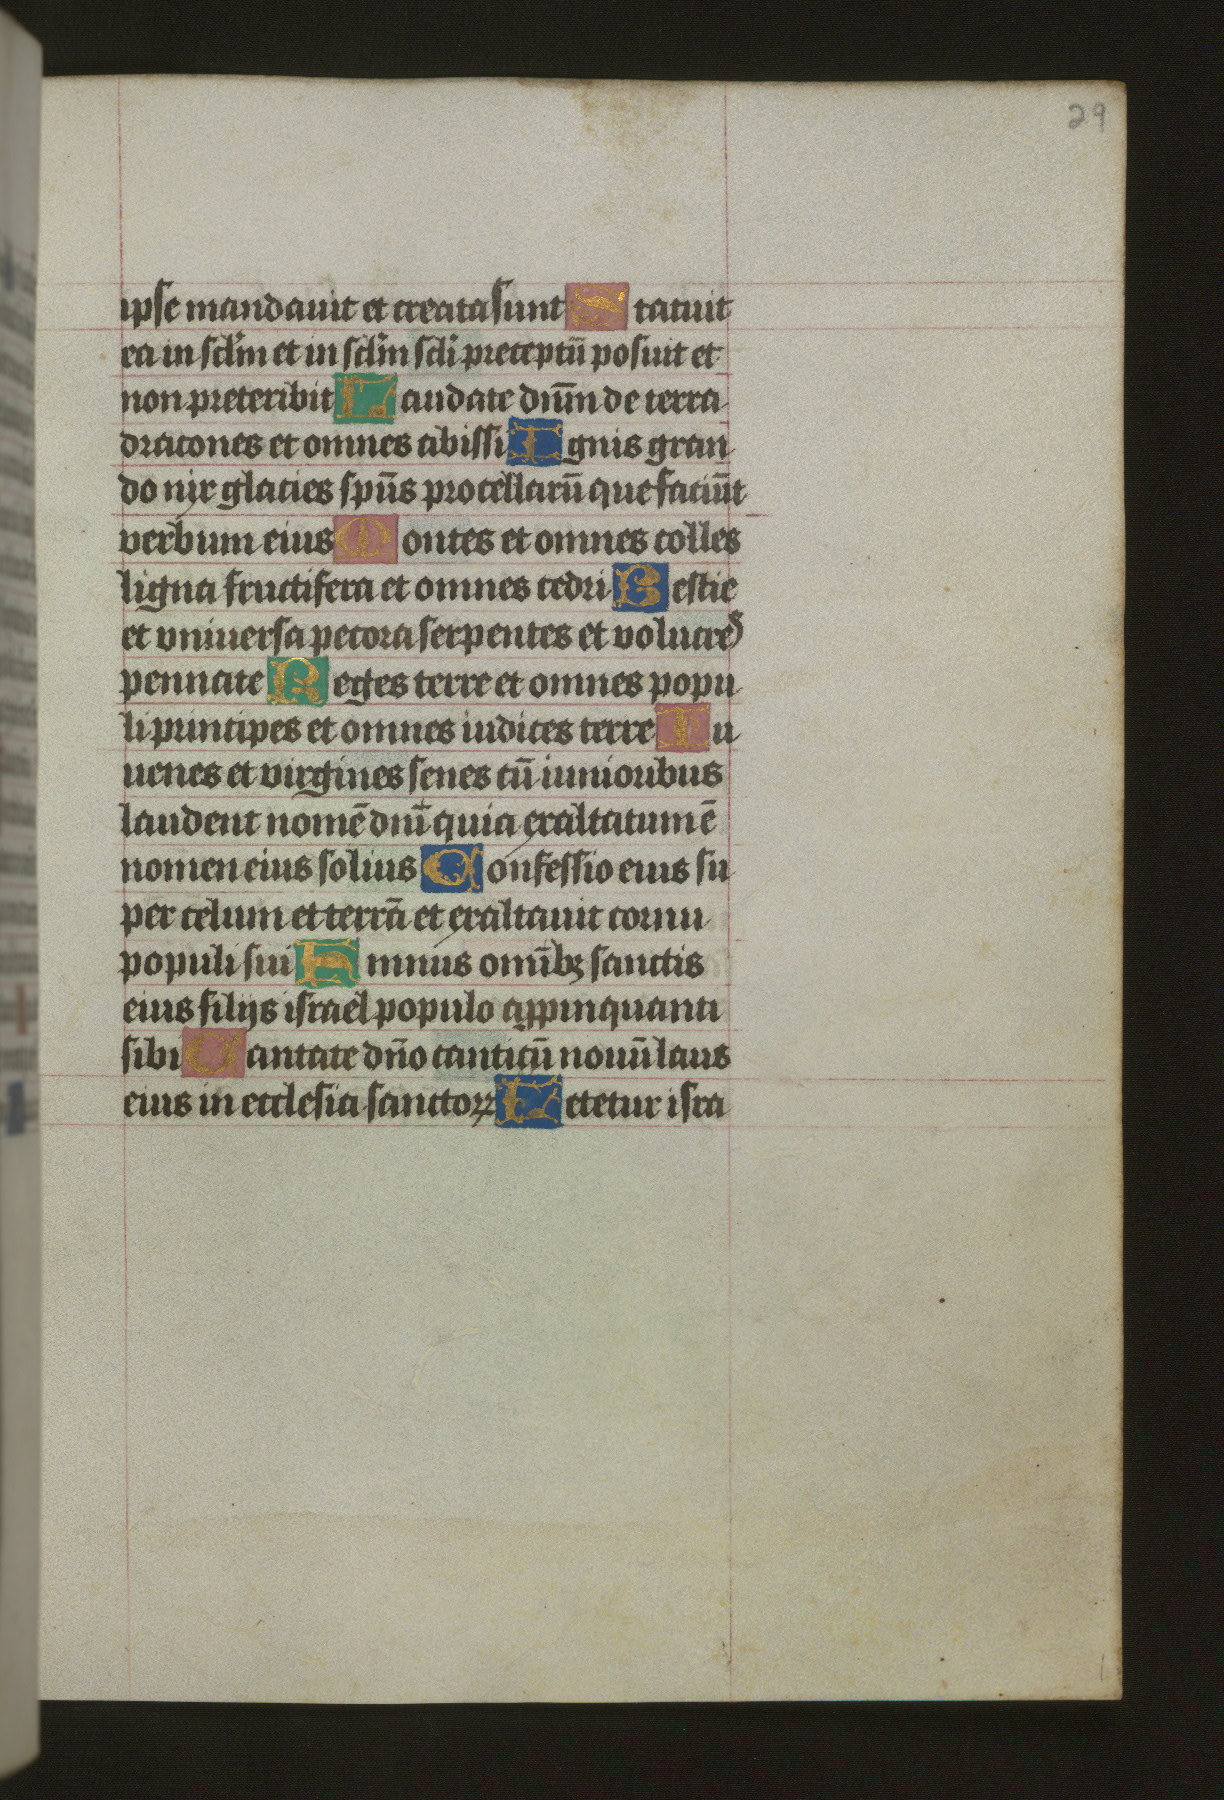 29
ipse mandauit et creata sunt Statuit
ea in sclm̄ et in sclm̄ scli̅ preceptū posuit et
non preteribit Laudate dnūm de terra
dracones et omnes abissi Ignis gran
do nix glacies spūs procellarū que faciūt
verbum eius Montes et omnes colles
ligna fructifera et omnes cedri Bestie
et vniuersa pecora serpentes et volucres
pennate Reges terre et omnes popu
li principes et omnes iudices terre Iu
uenes et virgines senes cū iunioribus
laudent nomē dnī quia exaltatum ē
nomen eius solius Confessio eius su
per celum et terrā et exaltauit cornu
populi sui Hmnus omībꝫ sanctis
eius filijs israel populo appinquanti
sibi Cantate dn̄o canticū nouū laus
eius in ecclesia sanctoꝝ Letetur isra